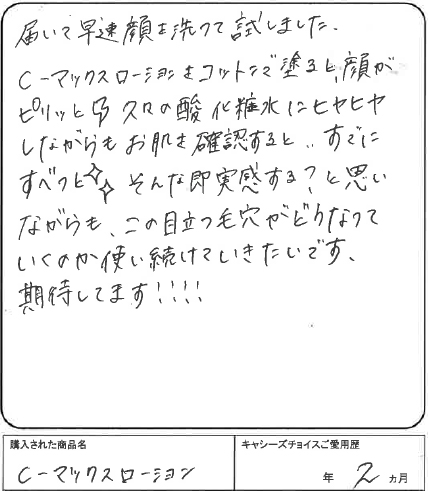 届いて早速顔を洗って試しました。
C-マックスローションをコットンで塗ると、顔が
ピリッと 久々の酸化粧水にヒヤヒヤ
しながらもお肌を確認すると、、すでに
すべっと✨ そんな即実感する?と思い
ながらも、この目立つ毛穴がどうなって
いくのか使い続けていきたいです、
期待してます!!!!
購入された商品名
C-マックスローション
キャシーズチョイスご愛用歴
年 2 ヵ月